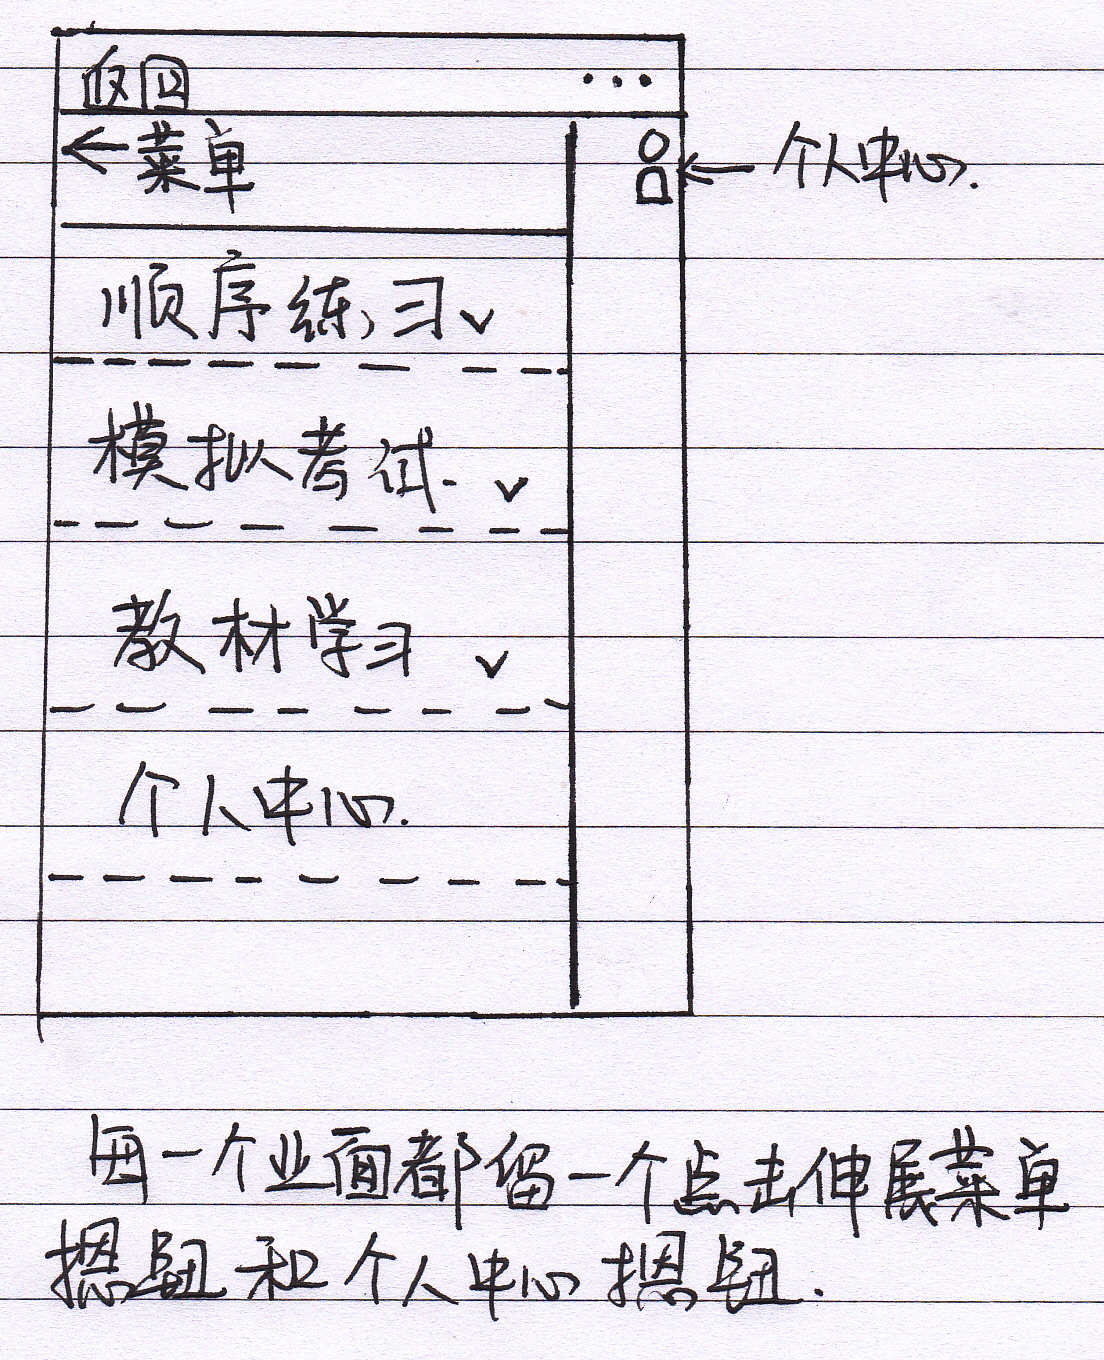 返回 ...
←菜单
←个人中心.
顺序练习
模拟考试.
教材学习
个人中心.
每一个业面都留一个点击伸展菜单
摁钮和个人中心摁钮.